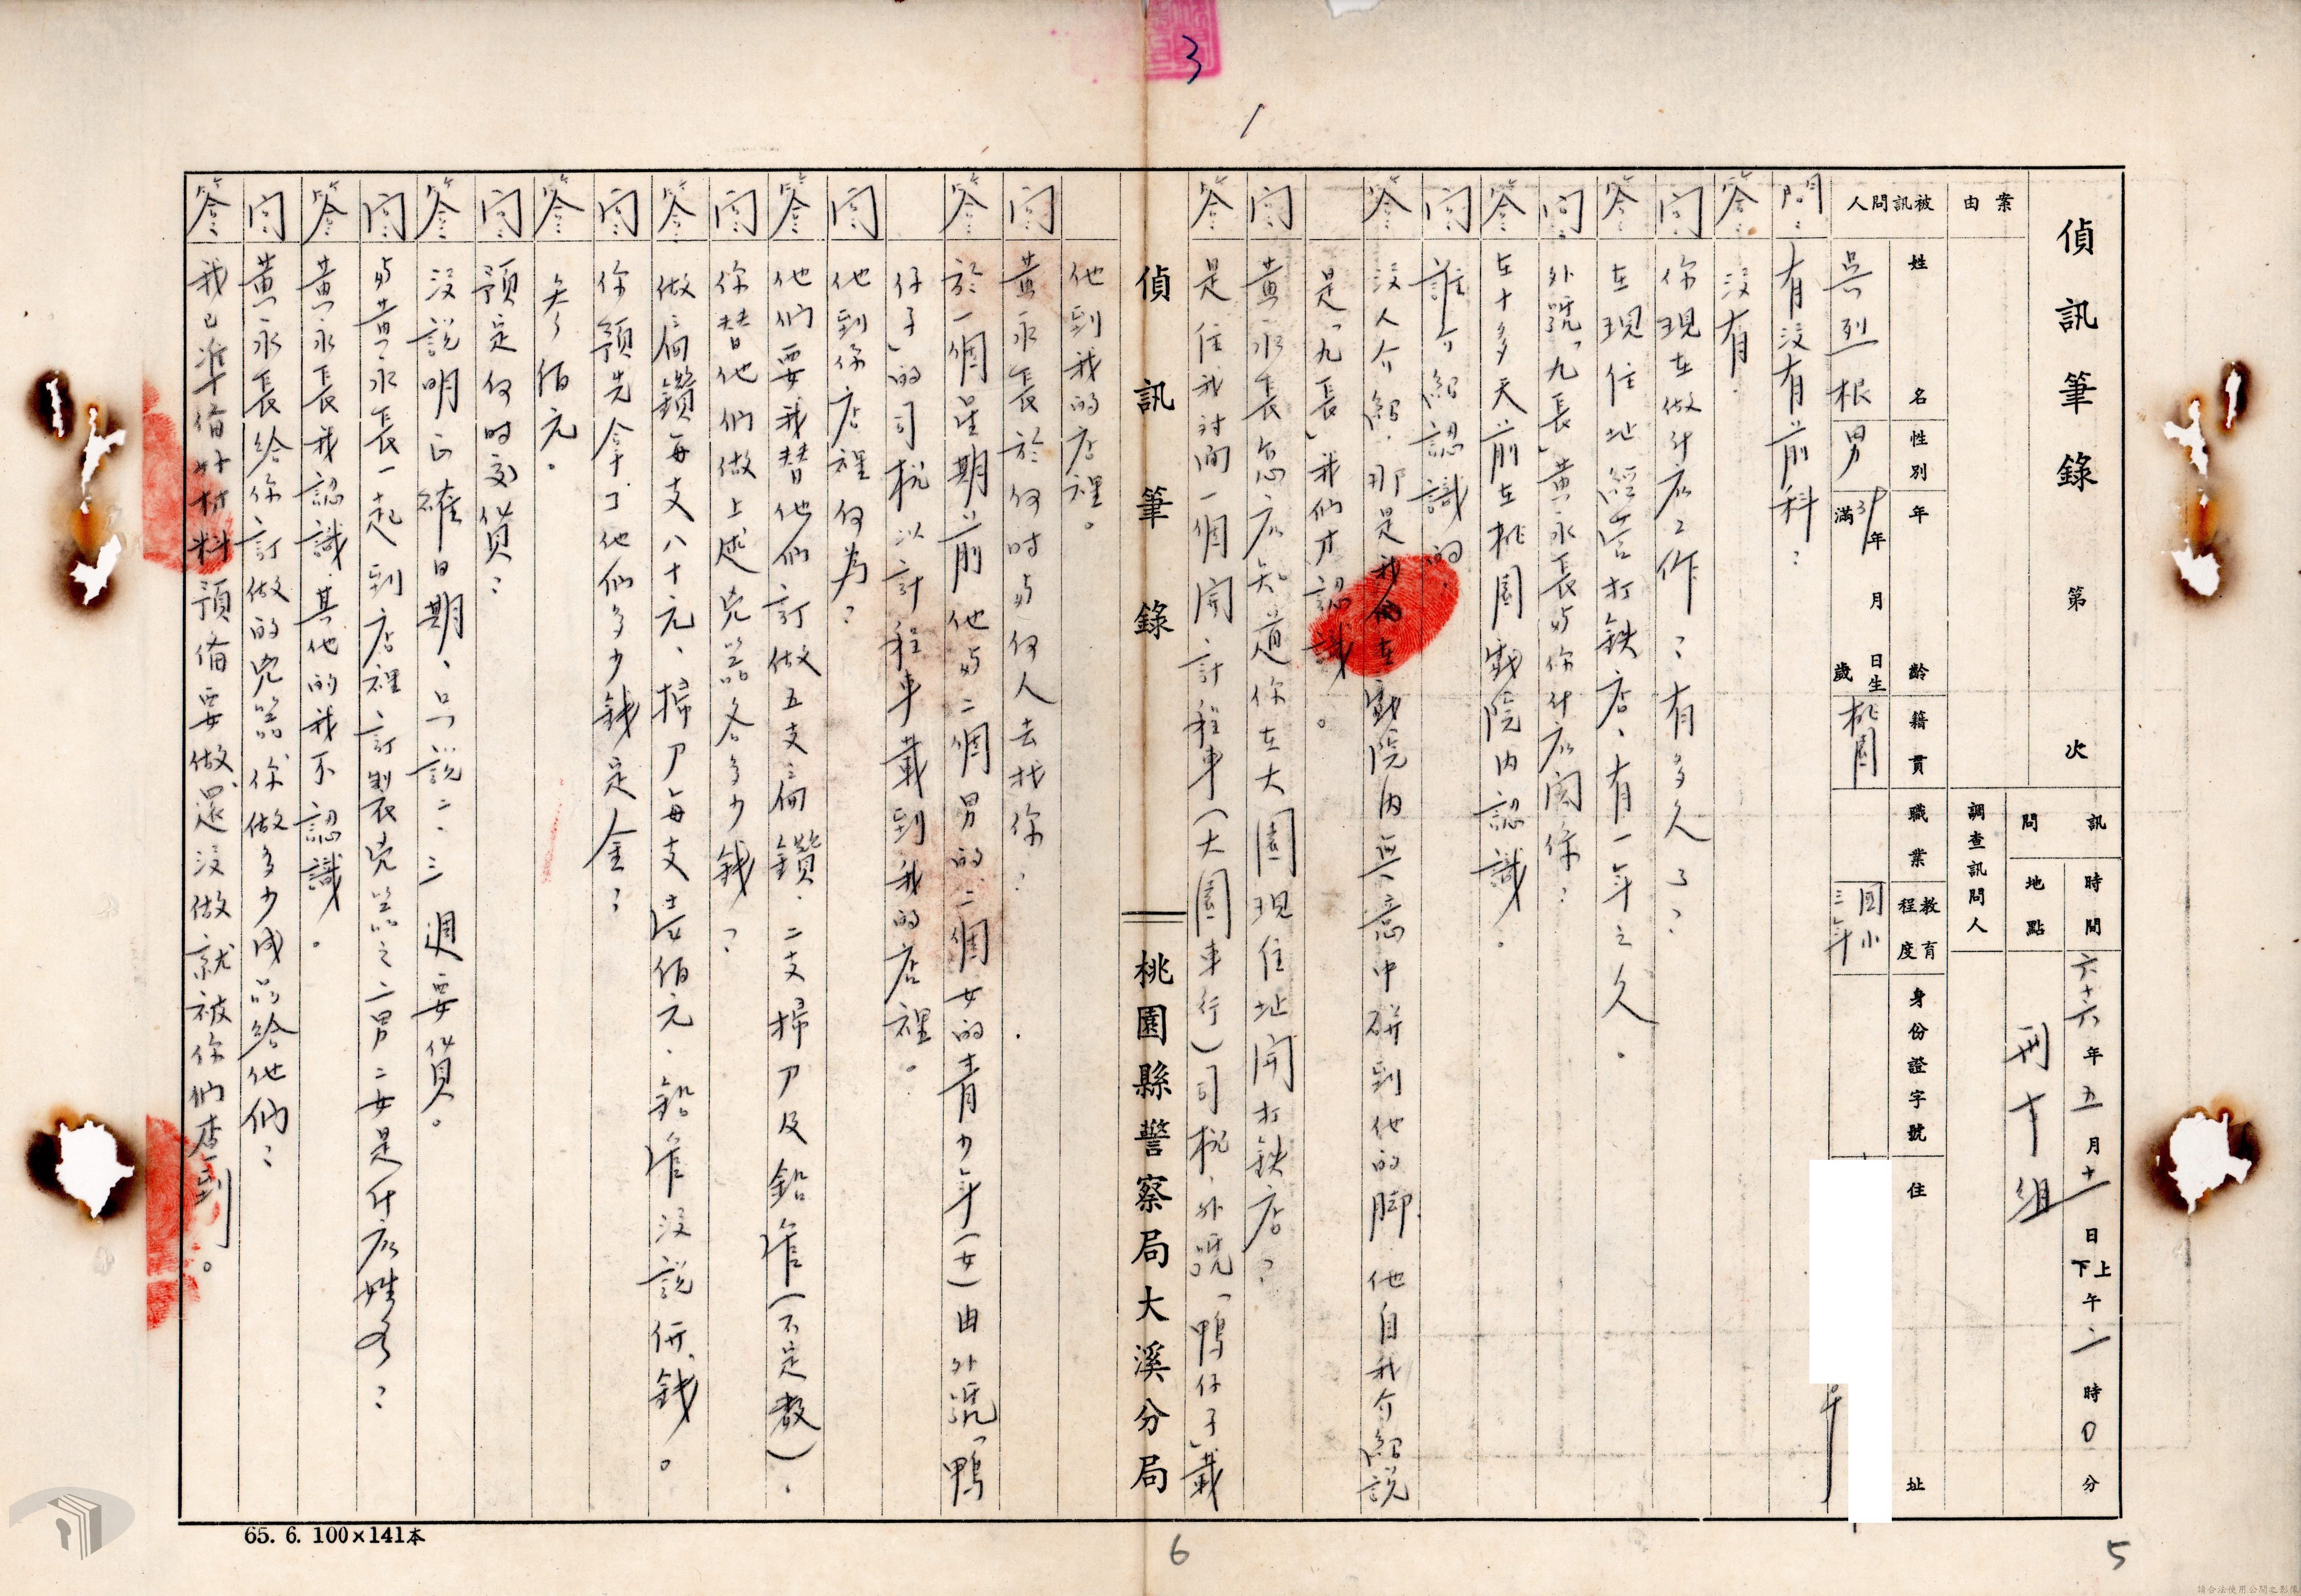 3
偵訊筆錄 第 次
訊問 時間 六十六年五月十一日 上下午二時0分
地點 刑十組
調查訊問人
案由
被訊問人
姓名 性別 年齡 籍貫 職業 教育程度 身份證字號 住址
吳烈根 男 39年 月 日生 滿 歲 桃園 國小三年
問:有沒有前科:
答:沒有.
問:你現在做什庅工作:有多久了:
答:在現住址經營打鉄店、有一年之久。
問:外號「九長」黃永長与你什庅関係:
答:在十多天前在桃園戯院內認識。
問:誰介紹認識的:
答:沒人介紹.那是我倆在戯院內無意中碰到他的脚.他自我介紹說
是「九長」我們才認識。
問:黃永長怎庅知道你在大園現住址開打鉄店:
答:是住我対面一個開計程車(大園車行)司机.外號「鴨仔子」載
偵訊筆錄 桃園縣警察局大溪分局
他到我的店裡。
問:黃永長於何時与何人去找你:
答:於一個星期前他与二個男的.二個女的青少年(女)由外號「鴨
仔子」的司机以計程車載到我的店裡。
問:他到你店裡何為:
答:他們要我替他們訂做五支扁鑽.二支掃刀及鉛隹(不定数).
問:你替他們做上述兇器各多少錢:
答:做扁鑽每支八十元、掃刀每支壱佰元.鉛隹沒說価錢。
問:你預先拿了他們多少錢定金:
答:叁佰元。
問:預定何時交貨:
答:沒說明正確日期、只說二、三週要貨。
問:与黃永長一起到店裡訂製兇器之二男二女是什庅姓名:
答:黃永長我認識.其他的我不認識。
問:黃永長給你訂做的兇器.你做多少成品給他們:
答:我已準俻好材料預俻要做.還沒做就被你們查到。
65. 6. 100×141本
6
5
請合法使用公開之影像